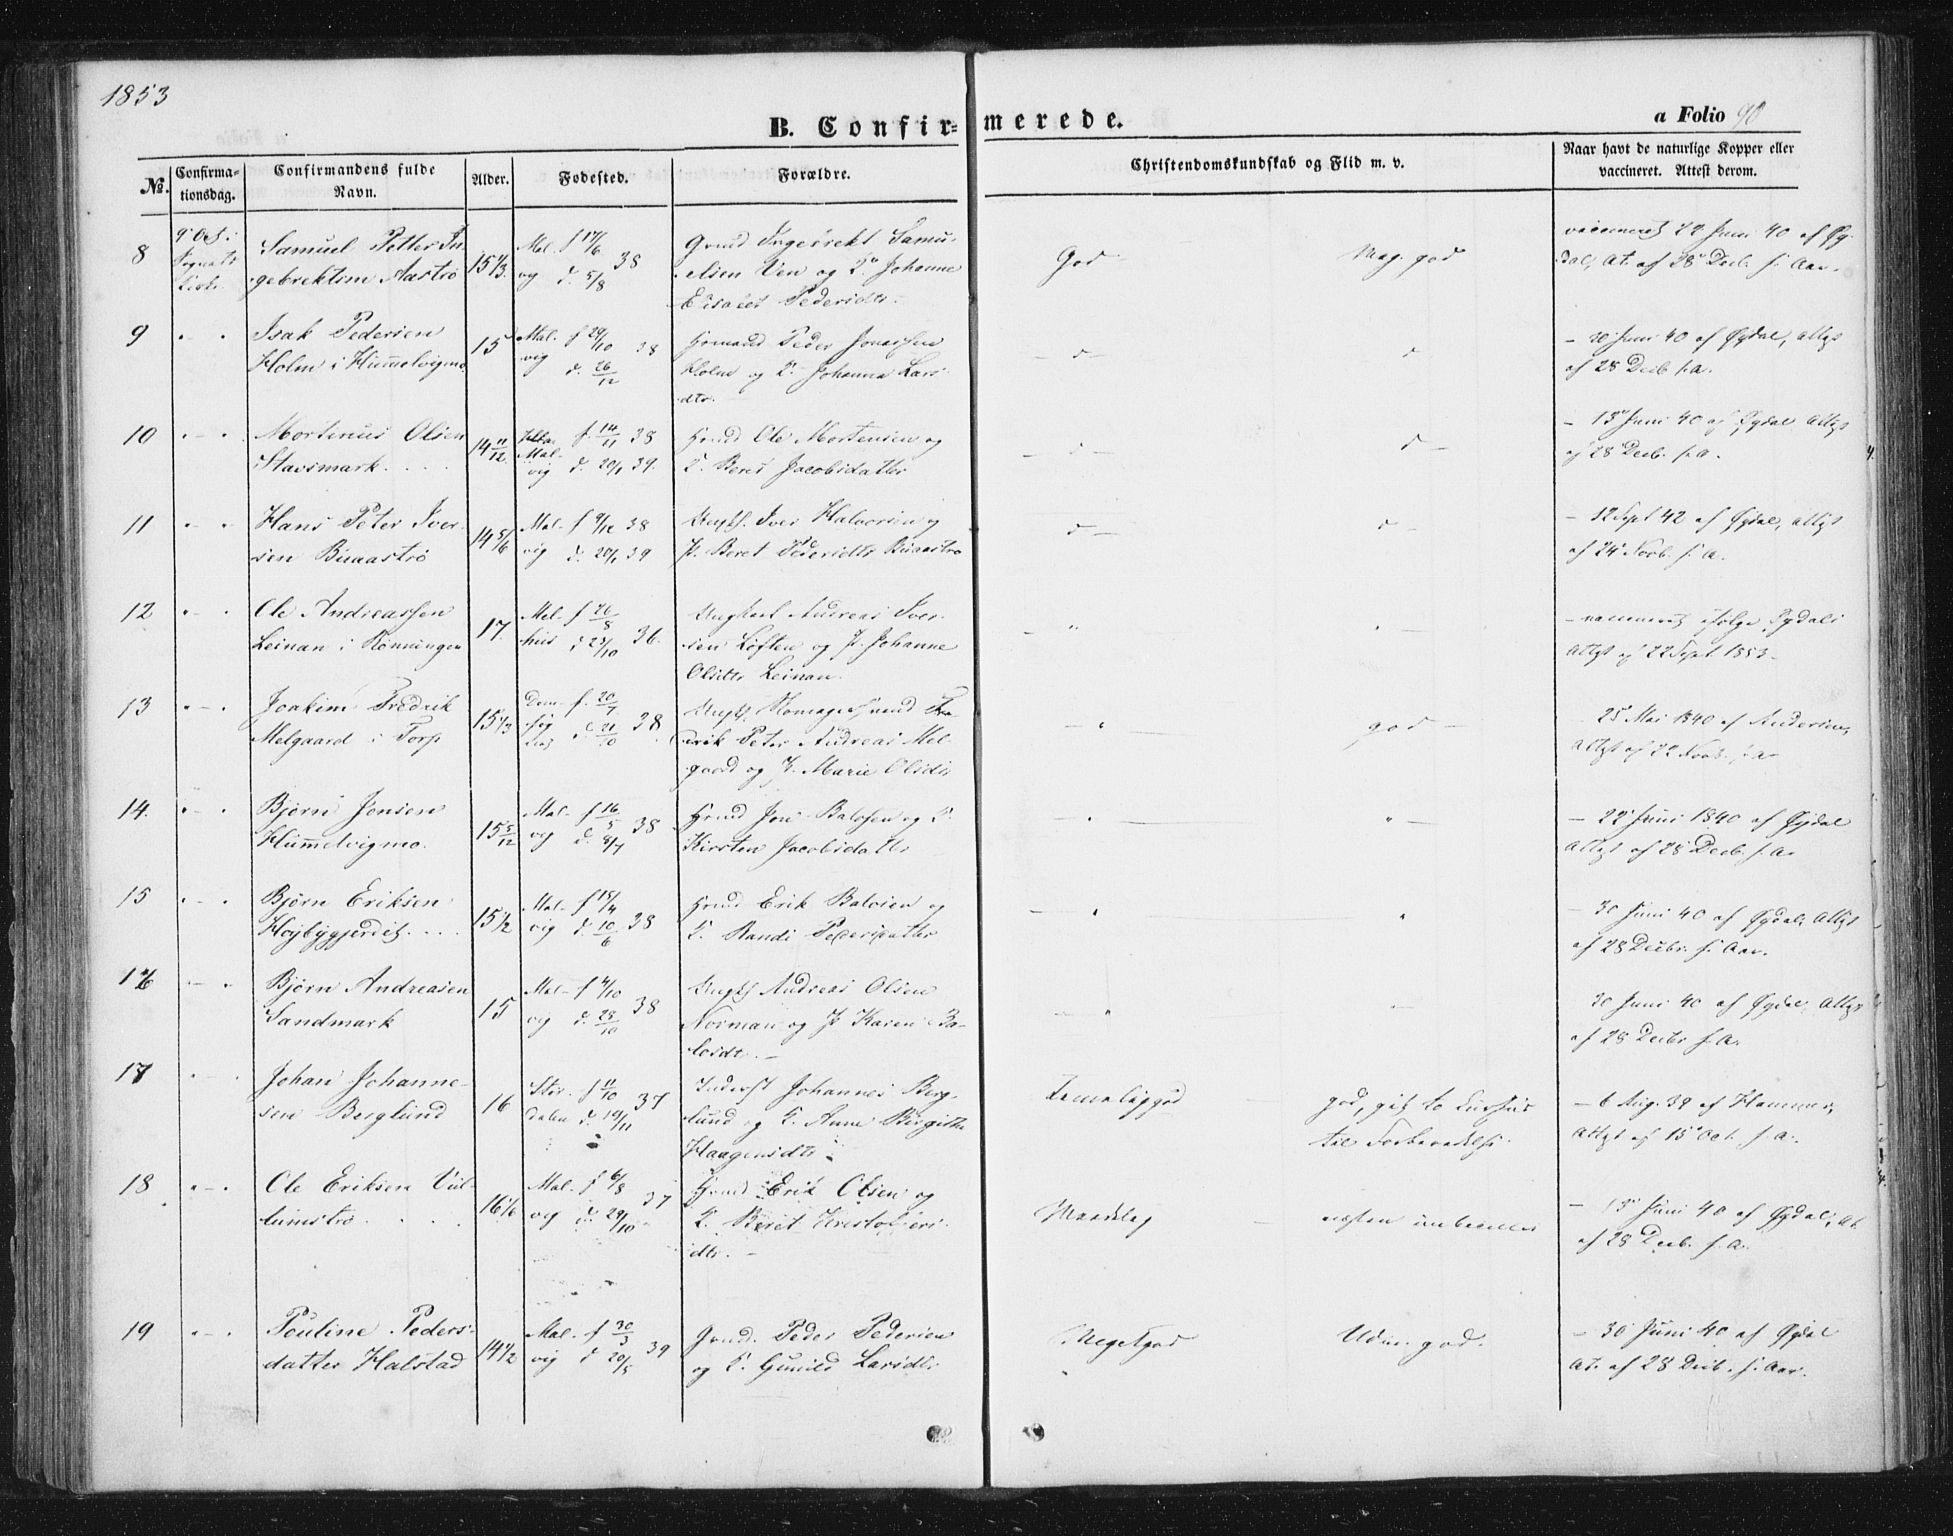 1853
B. Confirmerede.
a Folio 90
No.
Confirmationsdag.
Confirmandens fulde Navn.
Alder.
Fødested.
Forældre.
Christendomskundskab og Flid m. v.
Naar havt de naturlige Kopper eller
vaccineret. Attest derom.
8 9 Oct. Samuel Petter In-
gebrektsen Aastrø 15 1/3 Mal. f 17/6 38
og d. 5/8
Gmd Ingebrekt Samu-
elsen Ven og K. Johanne
Elisabet Pedersdtr.
God Meg. god
vaccineret 22 Juni 40 af Øy-
dal, At. af 28 Decb. s. Aar.
9 Isak Pedersen
Holm i Hummelvigmo 15 Mal- f 29/10 38
vig d. 26/12
Hmand Peder Jonassen
Holm og K. Johanna Lars-
dtr.
- d - d
- 30 Juni 40 af Øydal, Attst
af 28 Decb s. A.
10 Mortinus Olsen
Stavsmark 14 11/12 f. 14/11 38
Mal-
vig d. 20/1 39
Hmd Ole Mortensen og
K. Beret Jacobsdatter
- d - d -
- 13 Juni 40 af Øydal Attst
af 28 Decb. s. A.
11 Hans Peter Iver-
sen Buaastrø 14 5/6 Mal- f 9/12 38
vig d. 20/1 39
Ungk. Iver Halvorsen og
P. Beret Pedersdtr Buaastrø
d - d -
- 12 Sept 42 af Øydal, Attst
af 24 Novb. s. A.
12 Ole Andreassen
Leinan i Rønningen 17 Mel- f 26/8
hus d 23/10 36
Ungkarl Andreas Iver-
sen Løften og P. Johanne
Olsdtr Leinan.
- " " -
- vaccineret ifølge Øydals
Attst af 22 Sept 1853 -
13 Joakim Fredrik
Melgaard i Torp 15 1/3 f. 20/7
d. 21/10 38
Ungk. Fre-
derik Peter Andreas Mel-
gaard og P. Marie Olsdtr
- " god -
- 25 Mai 1840 af Andersen,
Attst af 22 Novb. s. A.
14. Bjørn Jonsen
Hummelvigmo. 15 5/12 Mal- f 16/5 38
vig d. 8/7
Hmd Jon Balosen og K.
Kirsten Jacobsdatter
- " " -
- 22 Juni 1840 af Øydal
Attst af 28 Decb. s. A.
15 Bjørn Eriksen
Højbygjerdet 15 1/2 Mal- f 15/4
vig d. 10/6 38
Hmd Erik Balosen og
K. Randi Pedersdatter
- " "
- 30 Juni 40 af Øydal, Attst
af 28 Decbr. s. Aar.
16 Bjørn Andreasen
Sandmark 15 Mal- f 4/10 38
vig d. 28/10
Ungk Andreas Olsen
Norman og P. Karen Ba-
losdt. -
- " -
30 Juni 40 af Øydal, Attst
af 28 Decbr s. A.
17 Johan Johanne-
sen Berglund 16 Stør- f 11/10 37
dalen d. 19/11
Inderst Johannes Berg-
lund og K. Anne Birgitte
Haagensdtr.
Temmelig god god,
til Forberedelse.
- 6 Aug. 39 af Hammer,
Attst af 15 Oct. s. A.
18 Ole Eriksen
16 1/6 Mal- f 6/8 37
vig d. 29/10
Hmd Erik Olsen og
K. Beret Kristofers-
dtr. -
Maadelig næsten
- 13 Juni 40 af Øydal, At.
af 28 Decb. s. A.
19 Pouline Peders-
datter Halstad 14 1/2 Mal- f 30/3 39
vig d 20/5
Gmd. Peder Pedersen
og K. Gunild Larsdtr
Meget god Udm. god.
- 30 Juni 40 af Øydal
At. af 28 Decb. s. Aar.